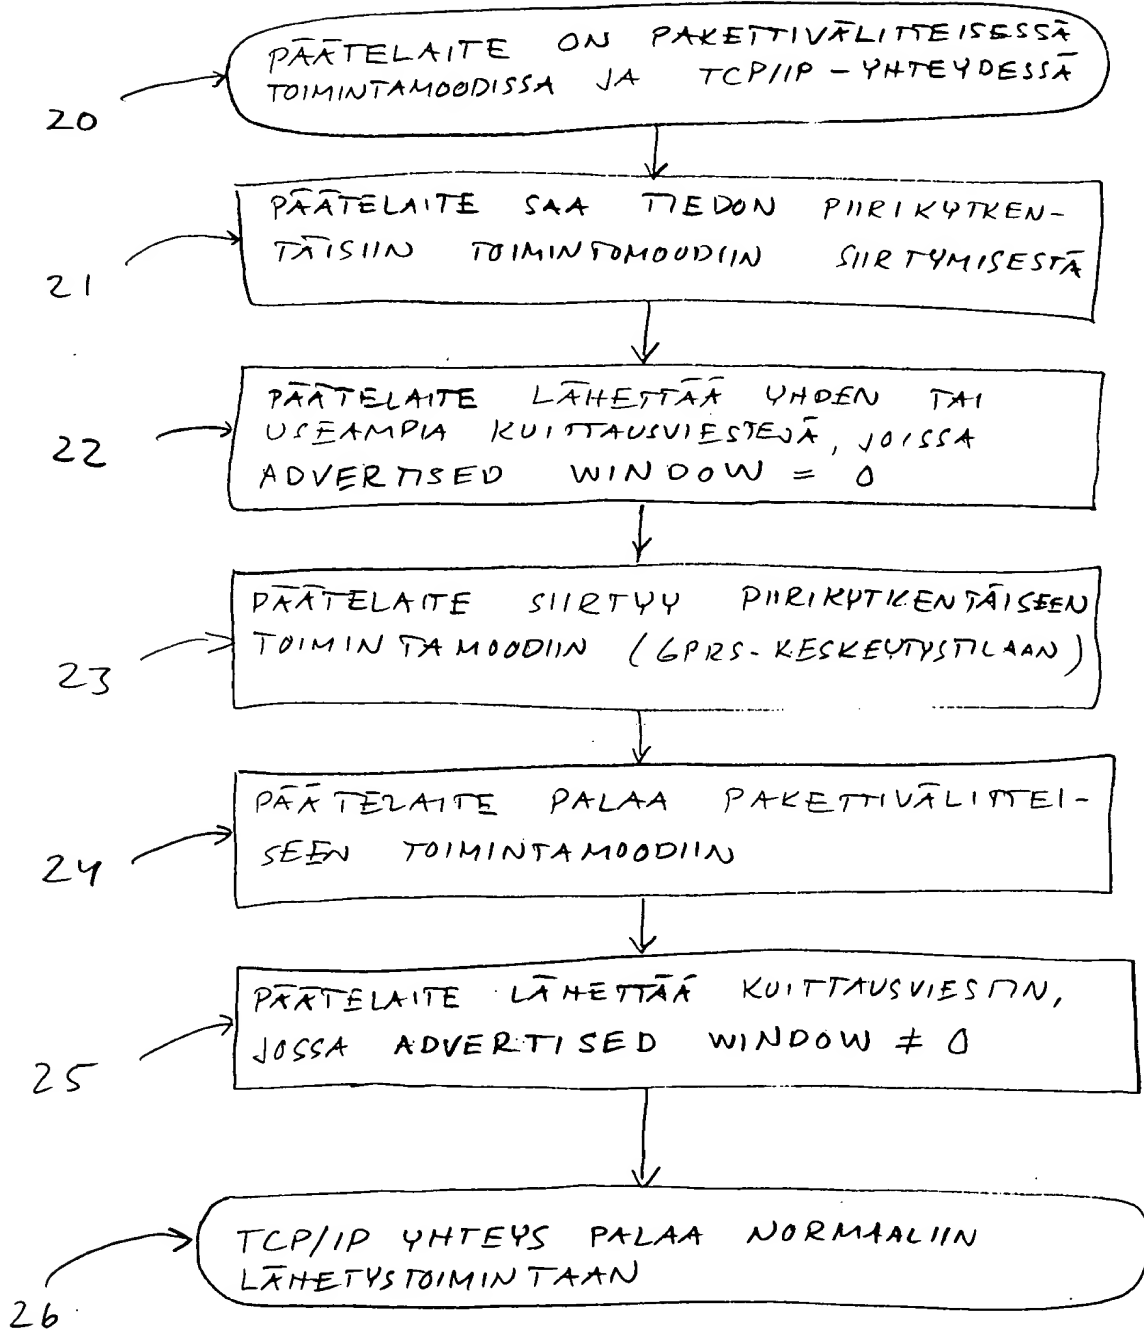 PÄÄTELAITE ON PAKETTIVÄLITTEISESSÄ
TOIMINTAMOODISSA JA TCP/IP - YHTEYDESSÄ
20
PÄÄTELAITE SAA TIEDON PIIRIKYTKEN-
TÄISIIN TOIMINTOMOODIIN SIIRTYMISESTÄ
21
PÄÄTELAITE LÄHETTÄÄ YHDEN TAI
USEAMPIA KUITTAUSVIESTEJÄ, JOISSA
ADVERTISED WINDOW = 0
22
PÄÄTELAITE SIIRTYY PIIRIKYTKENTÄISEEN
TOIMINTAMOODIIN (GPRS-KESKEYTYSTILAAN)
23
PÄÄTELAITE PALAA PAKETTIVÄLITTEI-
SEEN TOIMINTAMOODIIN
24
PÄÄTELAITE LÄHETTÄÄ KUITTAUSVIESTIN,
JOSSA ADVERTISED WINDOW ≠ 0
25
TCP/IP YHTEYS PALAA NORMAALIIN
LÄHETYSTOIMINTAAN
26